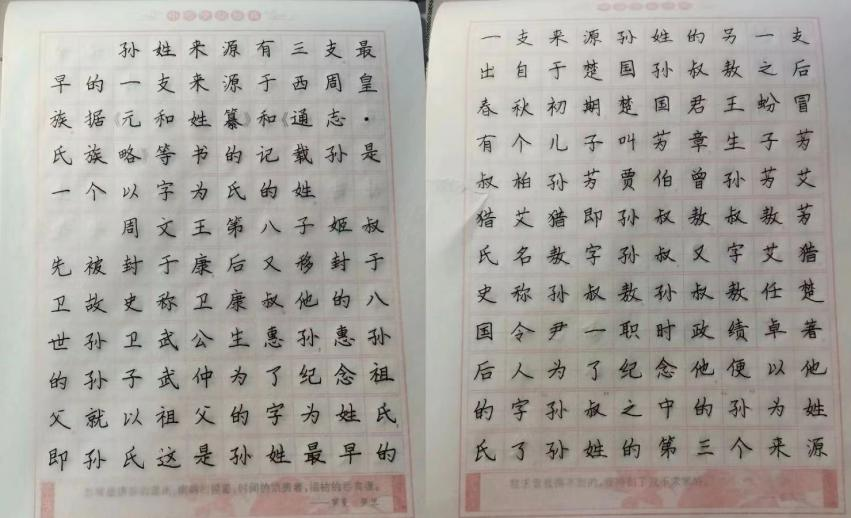 孙姓来源有三支最
早的一支来源于西周皇
族据《元和姓纂》和《通志·
氏族略》等书的记载孙是
一个以字为氏的姓
周文王第八子姬叔
先被封于康后又移封于
卫故史称卫康叔他的八
世孙卫武公生惠孙惠孙
的孙子武仲为了纪念祖
父就以祖父的字为姓氏
即孙氏这是孙姓最早的
一支来源孙姓的另一支
出自于楚国孙叔敖之后
春秋初期楚国君王蚡冒
有个儿子叫芳章生子芳
叔柏孙芳贾伯曾孙芳艾
猎艾猎即孙叔敖叔敖芳
氏名敖字孙叔又字艾猎
史称孙叔敖孙叔敖任楚
国令尹一职时政绩卓著
后人为了纪念他便以他
的字孙叔之中的孙为姓
氏了孙姓的第三个来源